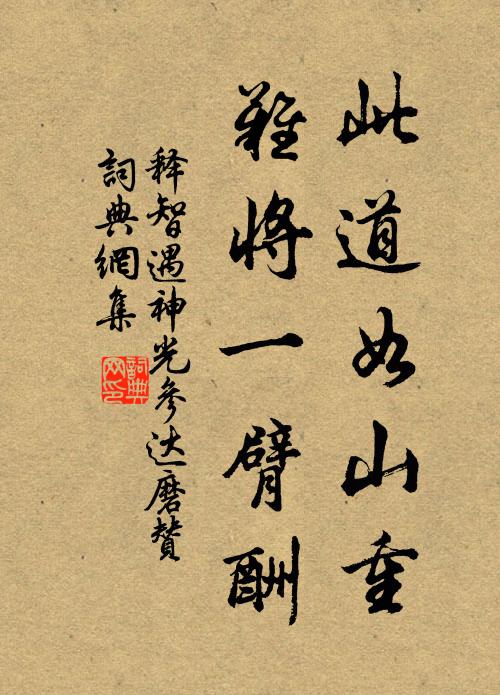 此道如山重
難將一臂酬
释智遇神光參达磨赞
詞典網集
詞典
网印